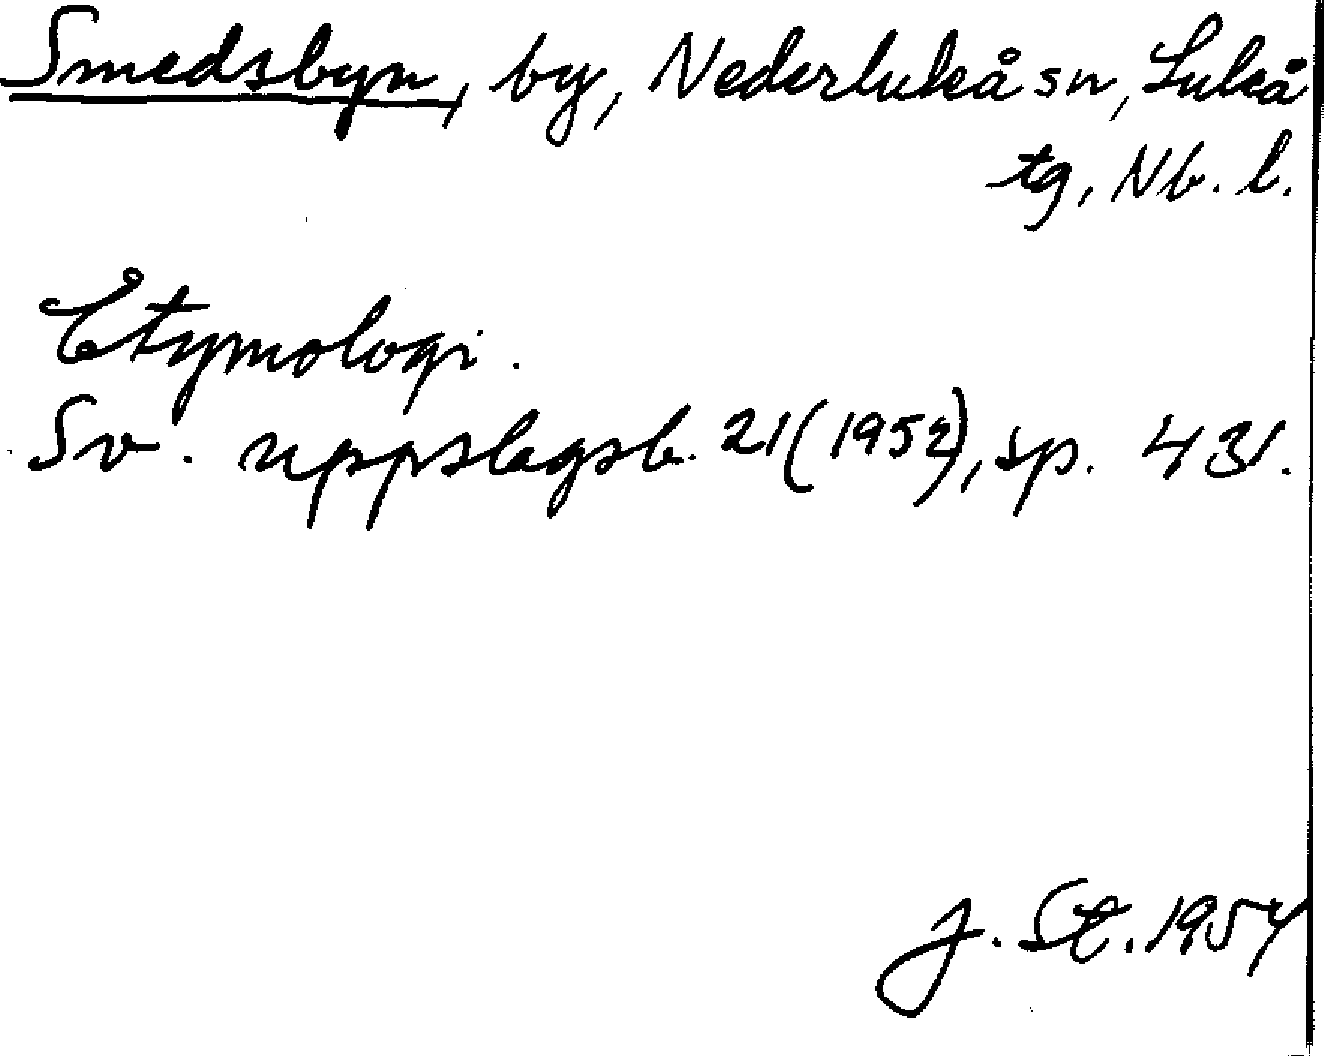 Smedsbyn, by, Nederluleå sn, Luleå
tg, Nb. l.
Etymologi.
Sv. uppslagsb. 21 (1952), sp. 431.
J. St. 1954